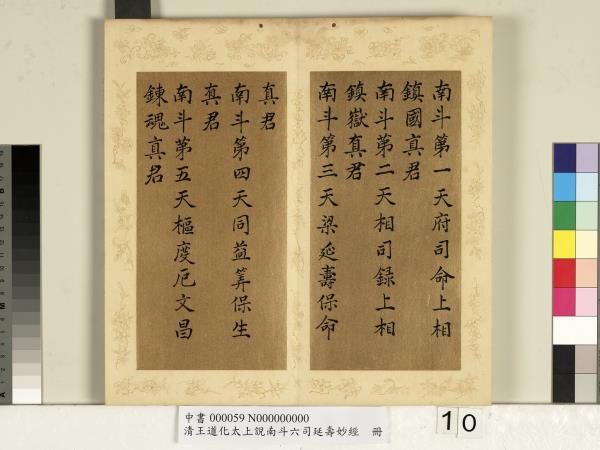 南斗第一天府司命上相
鎮國真君
南斗苐二天相司録上相
鎮嶽真君
南斗第三天梁延壽保命
真君
南斗第四天同益筭保生
真君
南斗第五天樞度厄文昌
鍊魂真君
中書 000059 N000000000
清王道化太上說南斗六司延壽妙經 冊
10